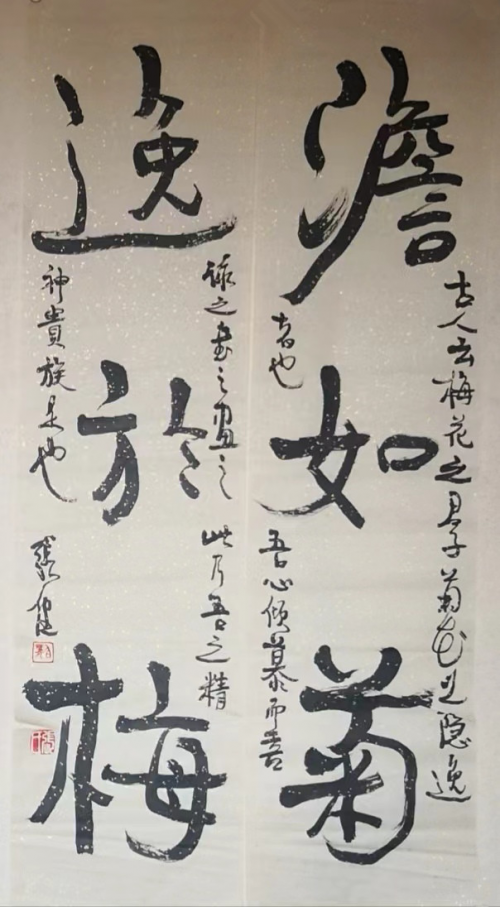 澹如菊
古人云梅花之君子菊花之隐逸
者也
吾心倾慕而喜
逸於梅
詠之書之畫之
此乃吾之精
神貴族是也